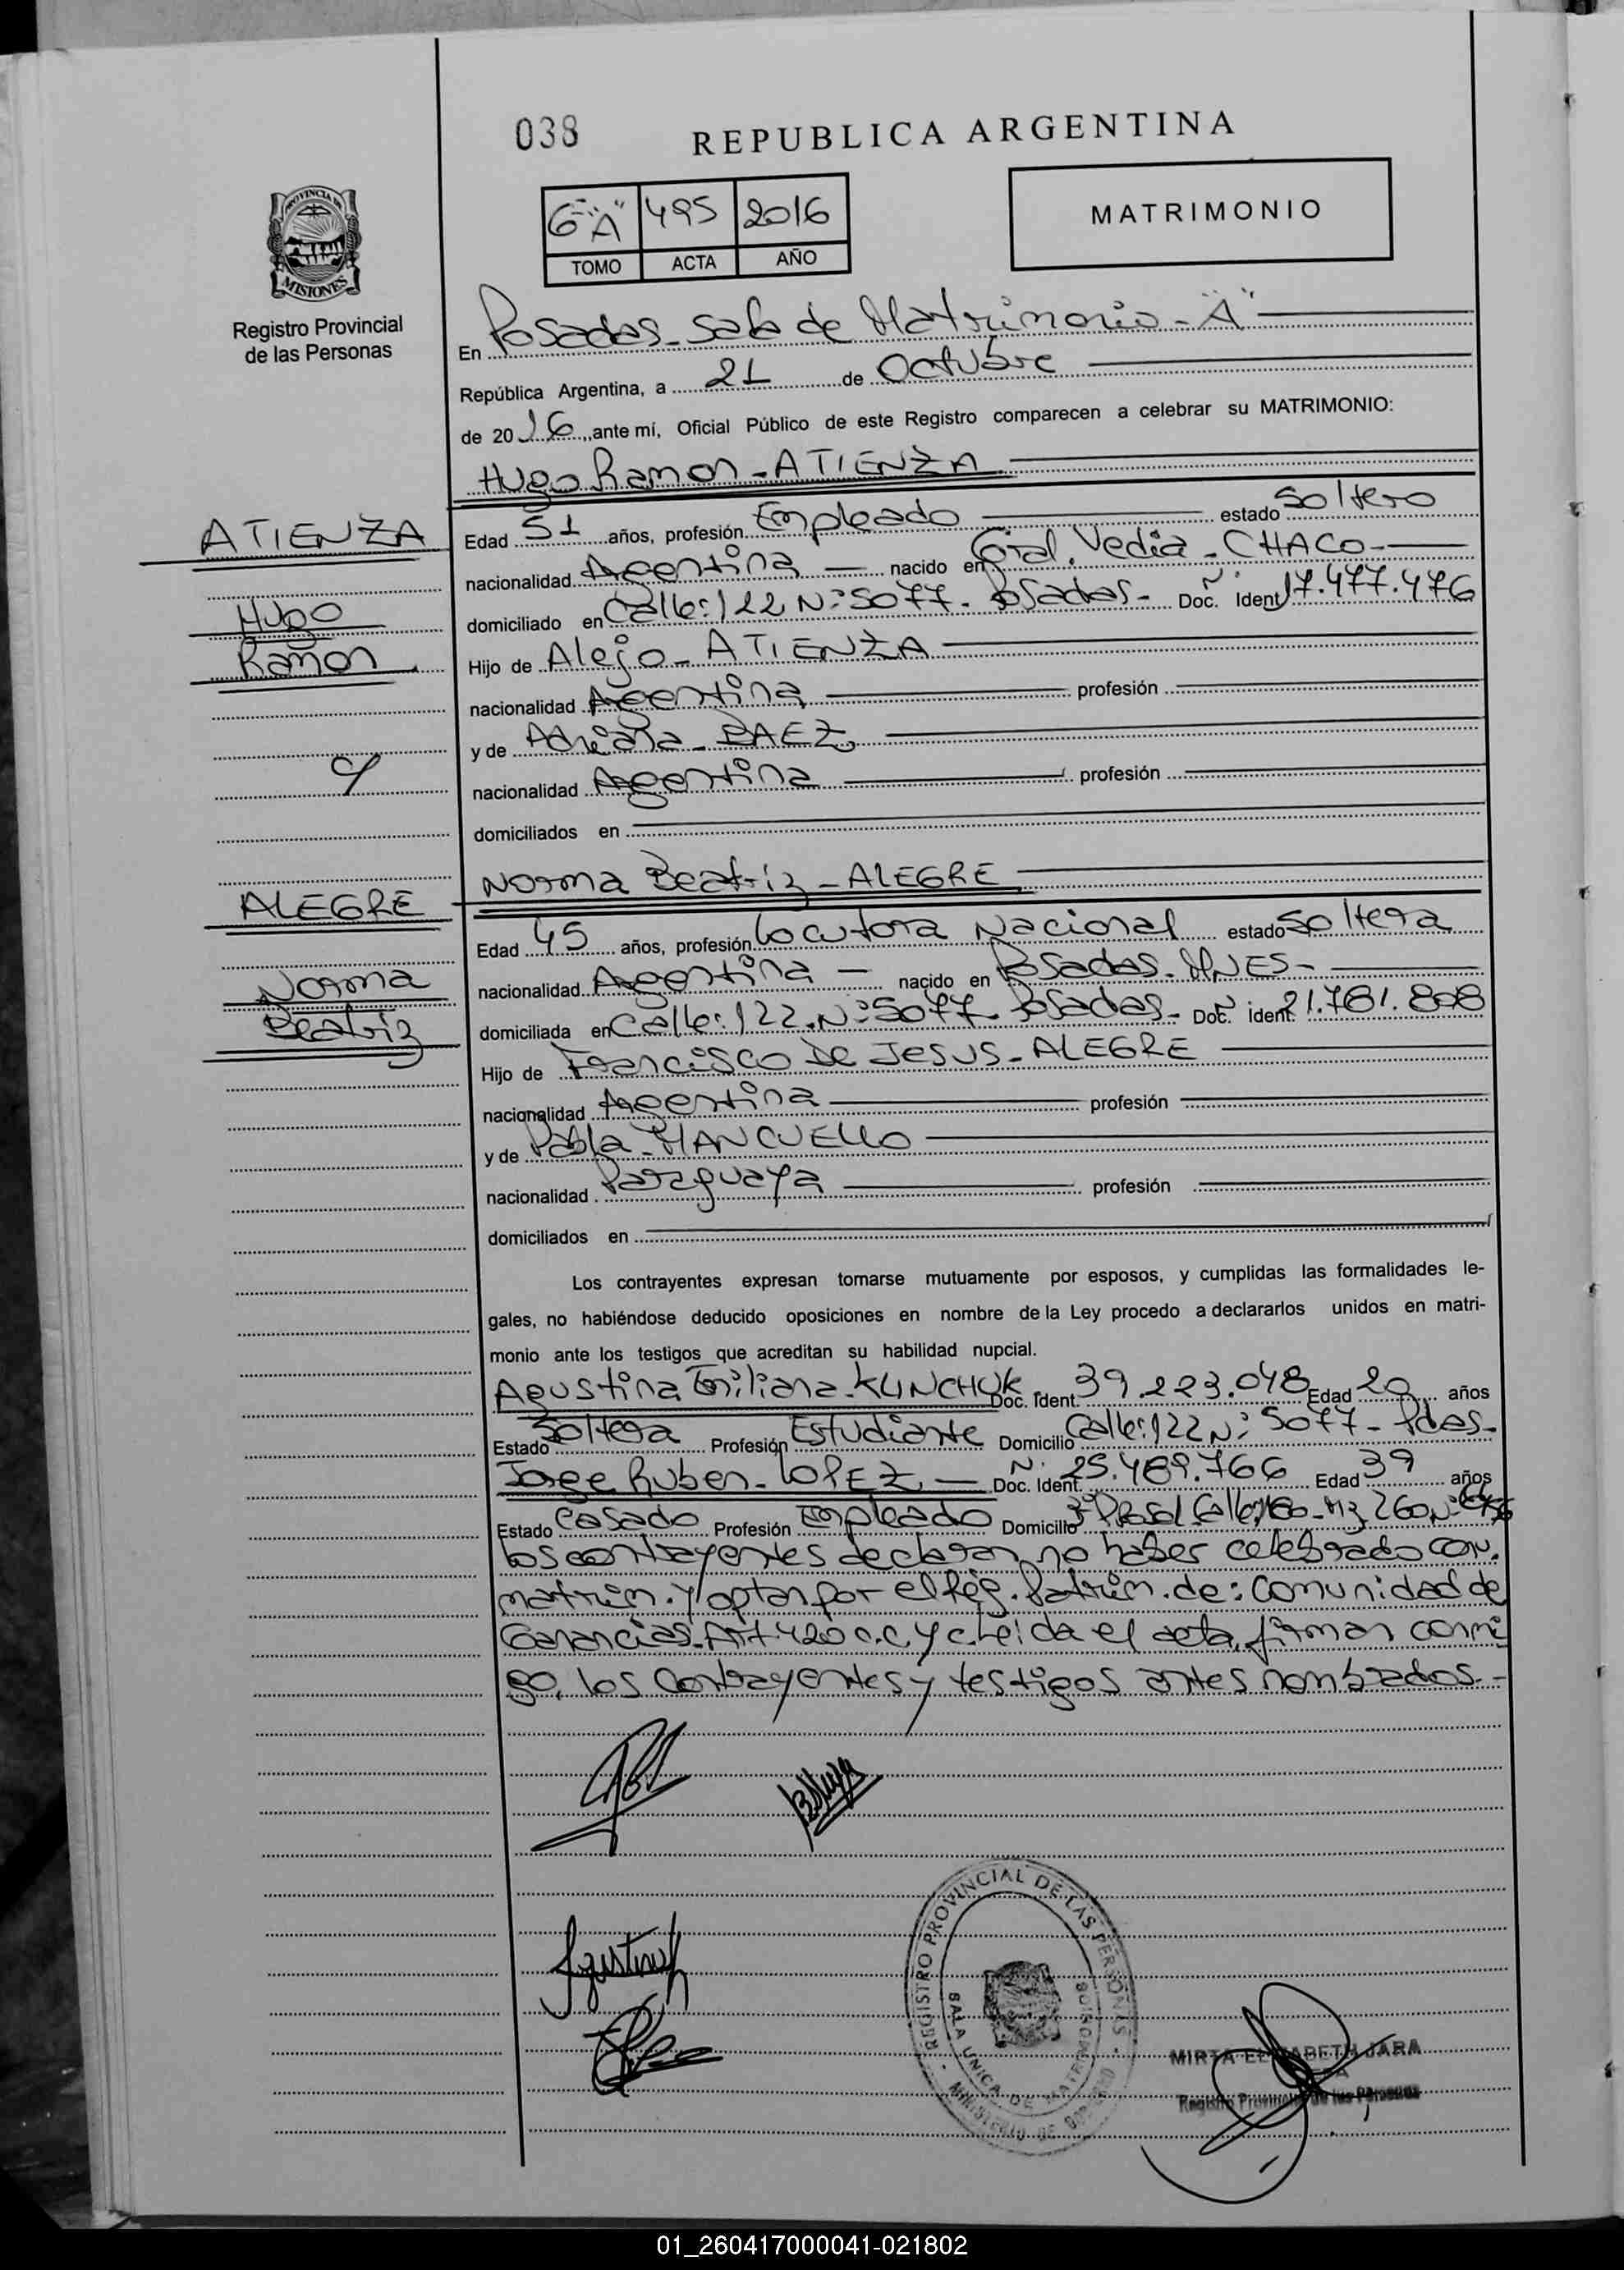 038
REPUBLICA ARGENTINA
6° "A" 495 2016
TOMO ACTA AÑO
MATRIMONIO
PROVINCIA DE MISIONES
Registro Provincial
de las Personas
En Posadas - Sala de Matrimonio - "A"
República Argentina, a 21 de Octubre
de 2016, ante mí, Oficial Público de este Registro comparecen a celebrar su MATRIMONIO:
Hugo Ramon - ATIENZA
ATIENZA
Hugo
Ramon
Edad 51 años, profesión Empleado estado Soltero
nacionalidad Argentina nacido en Gral. Vedia - CHACO -
domiciliado en Calle: 122 N: 5077 - Posadas - Doc. Ident N° 17.477.476
Hijo de Alejo - ATIENZA
nacionalidad Argentina profesión
y de Adriana - BAEZ
nacionalidad Argentina profesión
c/
domiciliados en
Norma Beatriz - ALEGRE
ALEGRE
Norma
Beatriz
Edad 45 años, profesión Locutora Nacional estado Soltera
nacionalidad Argentina - nacido en Posadas - MNES -
domiciliada en Calle: 122. N: 5077 - Posadas - Doc. Ident. N° 21.781.808
Hijo de Francisco De Jesus - ALEGRE
nacionalidad Argentina profesión
y de Pabla - MANCUELLO
nacionalidad Paraguaya profesión
domiciliados en
Los contrayentes expresan tomarse mutuamente por esposos, y cumplidas las formalidades le-
gales, no habiéndose deducido oposiciones en nombre de la Ley procedo a declararlos unidos en matri-
monio ante los testigos que acreditan su habilidad nupcial.
Agustina Emiliana - KLINCHUK Doc. Ident. 39.223.048 Edad 20 años
Estado Soltera Profesión Estudiante Domicilio Calle: 122 N: 5077 - Pdas -
Jorge Ruben - LOPEZ - Doc. Ident. N° 25.489.766 Edad 39 años
Estado Casado Profesión Empleado Domicilio Calle, 160 - Mz 260 N:
los contrayentes declaran no haber celebrado conv.
matrim. y optan por el Rég. Patrim. de: Comunidad de
Ganancias - Art. 420 c.c. y c. Leída el acta, firman conmi
go, los contrayentes y testigos antes nombrados. -
Agustina
REGISTRO PROVINCIAL DE LAS PERSONAS - MINISTERIO DE GOBIERNO
SALA UNICA DE MATRIMONIOS
MIRTA ELIZABETH JARA
Registro Provincial de las Personas
01_260417000041-021802